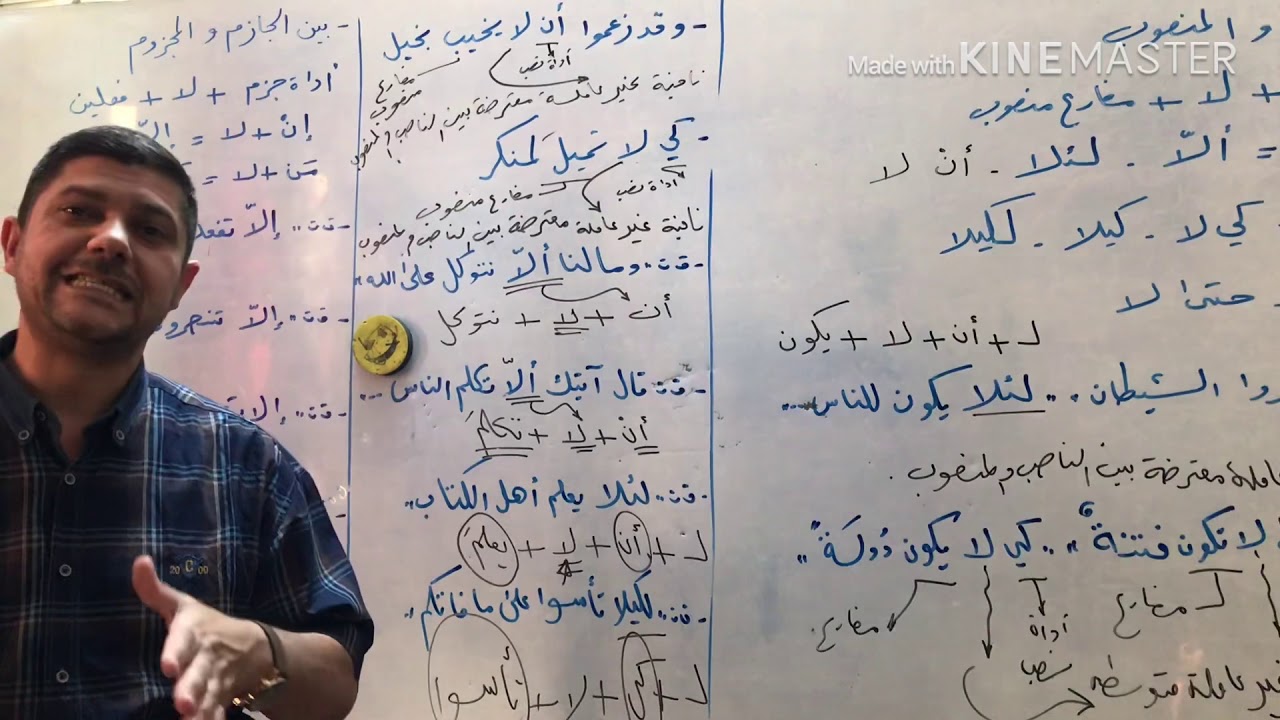 و المنصوب
Made with KINEMASTER
+ لا + مضارع منصوب
= ألاّ - لئلا - أن لا
كي لا - كيلا - لكيلا
حتى لا
لـ + أن + لا + يكون
الشيطان .. لئلا يكون للناس ...
معترضة بين الناصب والمنصوب .
لا تكون فتنةٌ ،، ،، كي لا يكون دُولَةً ،،
مضارع
أداة نصب
مضارع
غير عاملة متوسطة
- وقد زعموا أن لا يخيب بخيل
أداة نصب
مضارع منصوب
نافية غير عاملة معترضة بين الناصب والمنصوب
- كي لا تميلَ لمنكر
أداة نصب
مضارع منصوب
نافية غير عاملة معترضة بين الناصب والمنصوب
- قت ،، وما لنا ألاّ نتوكل على الله ،،
أن + لا + نتوكل
- قت قال آيتك ألاّ تكلم الناس ...
أن + لا + تكلمَ
- قت ،، لئلا يعلم أهل الكتاب ،،
لـ + أن + لا + يعلم
- قت ،، لكيلا تأسوا على ما فاتكم ،،
لـ + كي + لا + تأسوا
- بين الجازم و المجزوم
أداة جزم + لا + فعلين
إنْ + لا =
مَن + لا =
- قت ،، إلاّ
- قت ،، إلاّ
- قت ،،
20 C 00